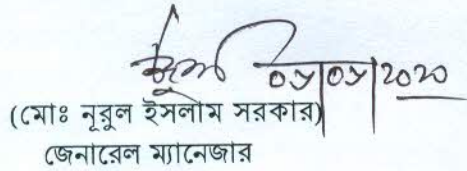 ০১|০১|2020
(মোঃ নূরুল ইসলাম সরকার)
জেনারেল ম্যানেজার